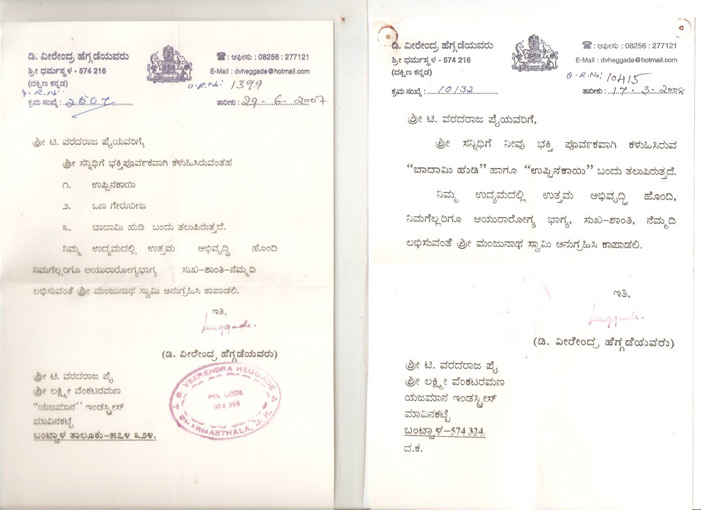 ಡಿ. ವೀರೇಂದ್ರ ಹೆಗ್ಗಡೆಯವರು
ಶ್ರೀ ಧರ್ಮಸ್ಥಳ - 574 216
(ದಕ್ಷಿಣ ಕನ್ನಡ)
☎ : ಆಫೀಸು : 08256 - 277121
E-Mail : dvheggade@hotmail.com
O.R.No: 1399
ಕ್ರಮ ಸಂಖ್ಯೆ : 2607
ತಾರೀಕು: 29-6-2007
ಶ್ರೀ ಟಿ. ವರದರಾಜ ಪೈಯವರಿಗೆ,
ಶ್ರೀ ಸನ್ನಿಧಿಗೆ ಭಕ್ತಿಪೂರ್ವಕವಾಗಿ ಕಳುಹಿಸಿರುವಂತಹ
೧. ಉಪ್ಪಿನಕಾಯಿ
೨. ಒಣ ಗೇರುಬೀಜ
೩. ಬಾದಾಮಿ ಹುಡಿ ಬಂದು ತಲುಪಿರುತ್ತದೆ.
ನಿಮ್ಮ ಉದ್ಯಮದಲ್ಲಿ ಉತ್ತಮ ಅಭಿವೃದ್ಧಿ ಹೊಂದಿ
ನಿಮಗೆಲ್ಲರಿಗೂ ಆಯುರಾರೋಗ್ಯಭಾಗ್ಯ ಸುಖ-ಶಾಂತಿ-ನೆಮ್ಮದಿ
ಲಭಿಸುವಂತೆ ಶ್ರೀ ಮಂಜುನಾಥ ಸ್ವಾಮಿ ಅನುಗ್ರಹಿಸಿ ಕಾಪಾಡಲಿ.
ಇತಿ,
(ಡಿ. ವೀರೇಂದ್ರ ಹೆಗ್ಗಡೆಯವರು)
ಶ್ರೀ ಟಿ. ವರದರಾಜ ಪೈ
ಶ್ರೀ ಲಕ್ಷ್ಮೀ ವೆಂಕಟರಮಣ
"ಯಜಮಾನ" ಇಂಡಸ್ಟ್ರೀಸ್
ಮಾವಿನಕಟ್ಟೆ
ಬಂಟ್ವಾಳ ತಾಲೂಕು-೫೭೪ ೩೨೪.
D. VEERENDRA HEGGADE
PIN CODE
574 216
DHARMASTHALA, D. K.
ಡಿ. ವೀರೇಂದ್ರ ಹೆಗ್ಗಡೆಯವರು
ಶ್ರೀ ಧರ್ಮಸ್ಥಳ - 574 216
(ದಕ್ಷಿಣ ಕನ್ನಡ)
☎ : ಆಫೀಸು : 08256 - 277121
E-Mail : dvheggade@hotmail.com
O.R.No: 10415
ಕ್ರಮ ಸಂಖ್ಯೆ : 10132
ತಾರೀಕು: 17-3-2008
ಶ್ರೀ ಟಿ. ವರದರಾಜ ಪೈಯವರಿಗೆ,
ಶ್ರೀ ಸನ್ನಿಧಿಗೆ ನೀವು ಭಕ್ತಿ ಪೂರ್ವಕವಾಗಿ ಕಳುಹಿಸಿರುವ
"ಬಾದಾಮಿ ಹುಡಿ" ಹಾಗೂ "ಉಪ್ಪಿನಕಾಯಿ" ಬಂದು ತಲುಪಿರುತ್ತದೆ.
ನಿಮ್ಮ ಉದ್ಯಮದಲ್ಲಿ ಉತ್ತಮ ಅಭಿವೃದ್ಧಿ ಹೊಂದಿ,
ನಿಮಗೆಲ್ಲರಿಗೂ ಆಯುರಾರೋಗ್ಯ ಭಾಗ್ಯ, ಸುಖ-ಶಾಂತಿ, ನೆಮ್ಮದಿ
ಲಭಿಸುವಂತೆ ಶ್ರೀ ಮಂಜುನಾಥ ಸ್ವಾಮಿ ಅನುಗ್ರಹಿಸಿ ಕಾಪಾಡಲಿ.
ಇತಿ,
(ಡಿ. ವೀರೇಂದ್ರ ಹೆಗ್ಗಡೆಯವರು)
ಶ್ರೀ ಟಿ. ವರದರಾಜ ಪೈ
ಶ್ರೀ ಲಕ್ಷ್ಮೀ ವೆಂಕಟರಮಣ
ಯಜಮಾನ ಇಂಡಸ್ಟ್ರೀಸ್
ಮಾವಿನಕಟ್ಟೆ
ಬಂಟ್ವಾಳ-574 324.
ದ.ಕ.